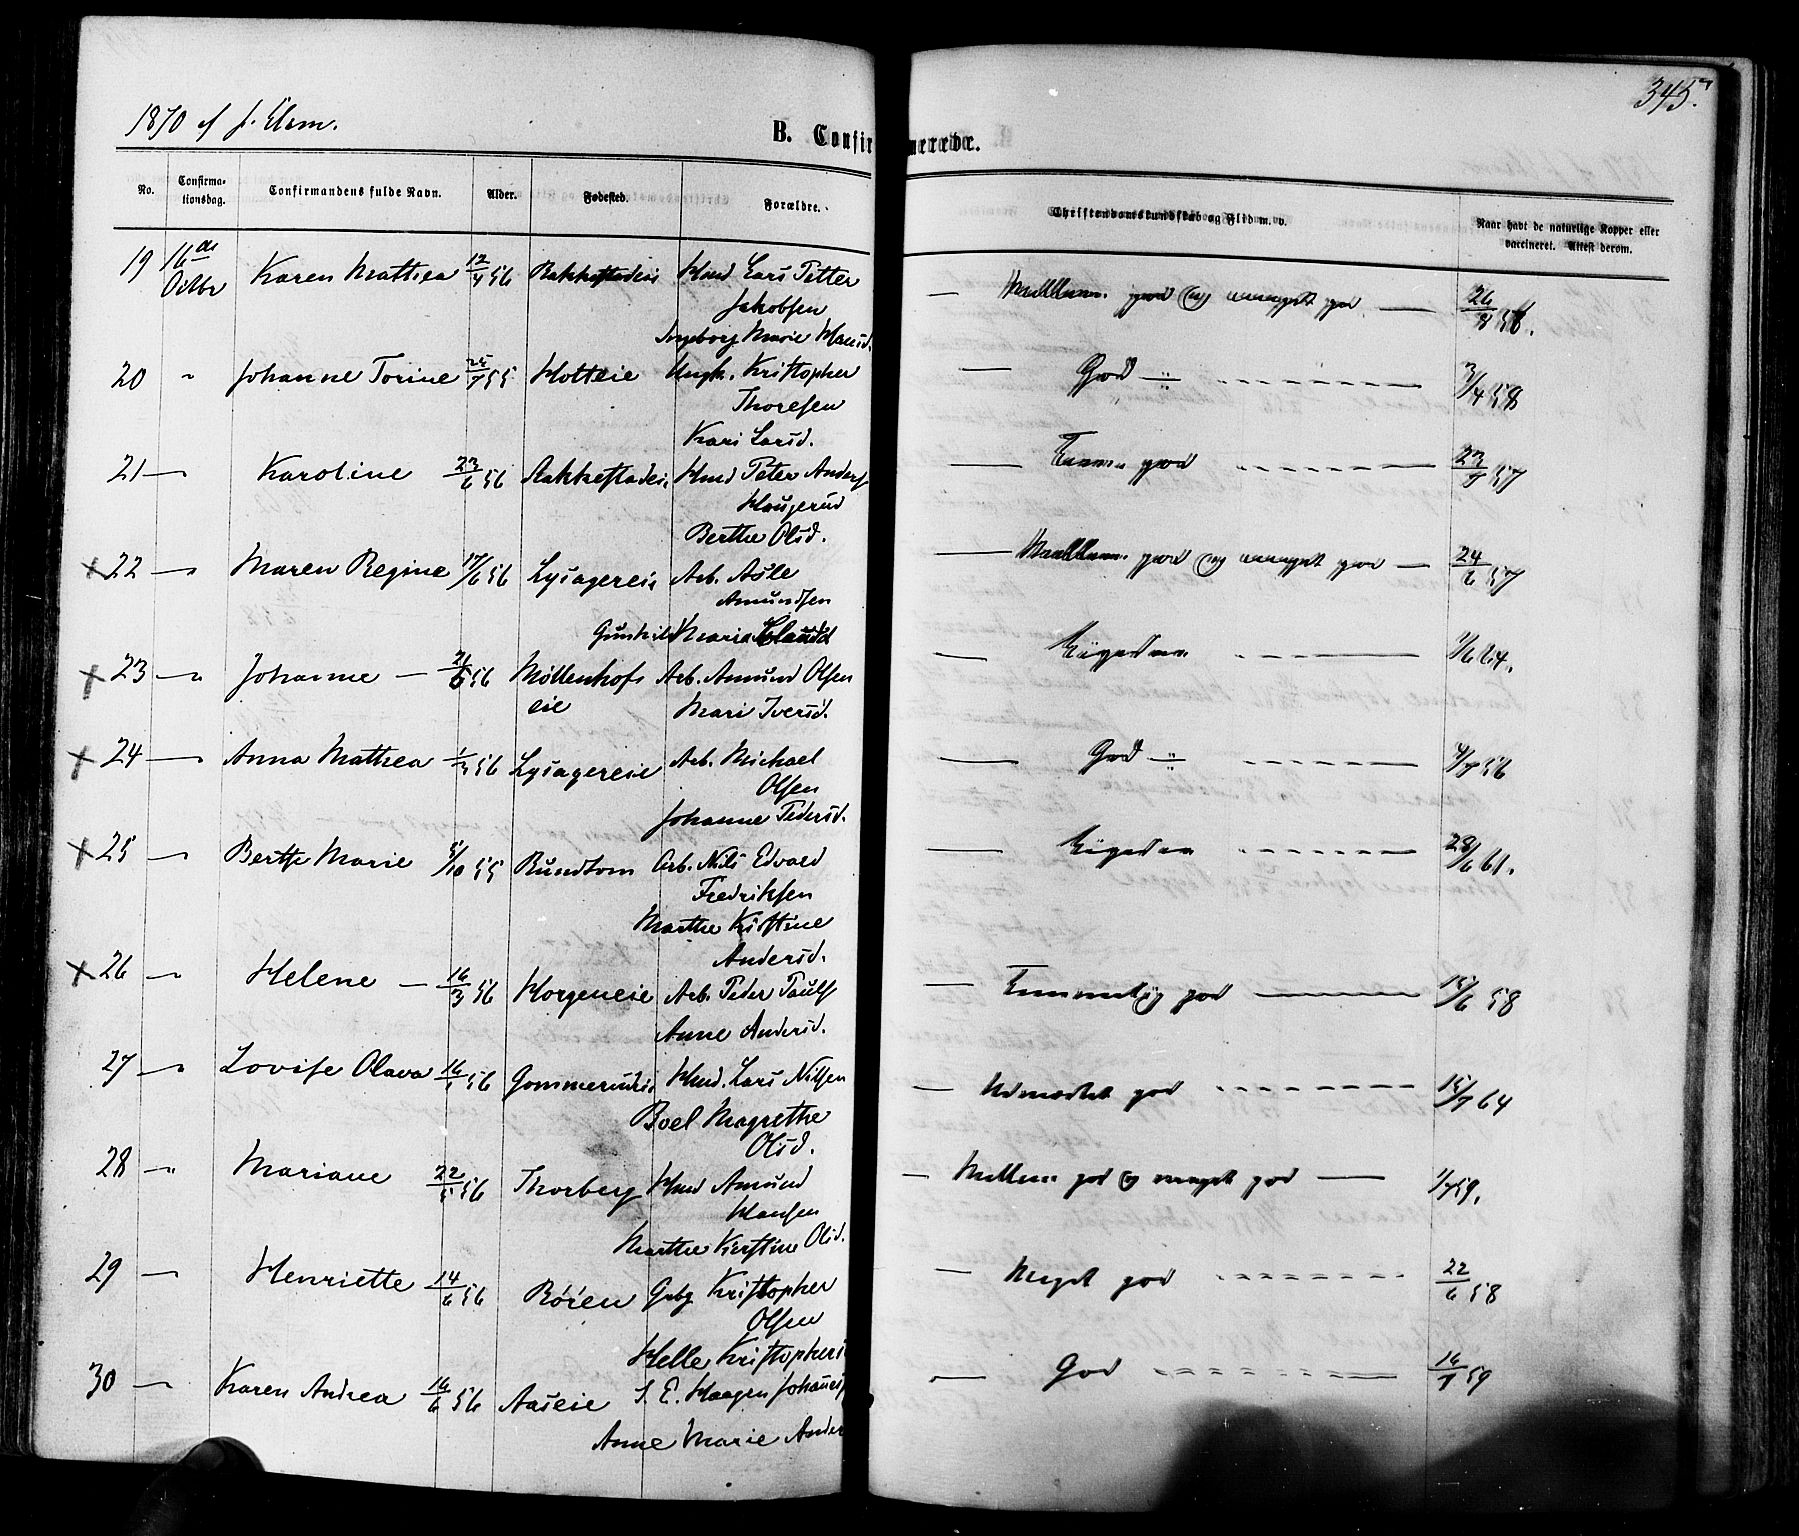 1870 345.
B. Confirmerede.
No. Confirmationsdag. Confirmandens fulde Navn. Alder. Fødested. Forældre. Christendomskundskab og Flid m. v. Naar havt de naturlige Kopper eller vaccineret. Attest derom.
19 16de Karen Mathea 12/4 56 Rakkestadeie Hmd Lars Petter
Octbr Jakobsen Mellem god og meget god 26/8 58.
Ingeborg Marie Hansd.
20 " Johanne Torine 25/7 55 Holteie Ungk. Kristopher God 3/4 58
Thoresen
Kari Larsd.
21 — Karoline 23/6 56 Rakkestadeie Hmd Peter Anders god 23/7 57
Haugerud
Berthe Olsd.
22 — Maren Regine 17/6 56 Lysagereie Arb. Asle Mellem god og meget god 24/6 57
Amundsen
Gunhild Maria
23 — Johanne — 21/5 56 Møllenhofs Arb. Amund Olsen 1/6 64.
eie Mari Iversd.
24 — Anna Mathea 1/3 56 Lysagereie Arb. Michael God 4/7 56
Olsen
Johanne Pedersd.
25 — Berthe Marie 5/10 55 Rundtom Arb. Nils Edvard 28/6 61.
Fredriksen
Marthe Kristine
Andersd.
26 — Helene — 16/3 56 Horgeneie Arb. Peder Pauls Temmelig god 15/6 58
Anne Andersd.
27 — Lovise Olava 16/1 56 Gommerudei Hmd. Lars Nilsen Udmærket god 15/7 64
Boel Magrethe
Olsd.
28 — Mariane 22/5 56 Thorberg Hmd Amund Mellem god og meget god 1/7 59.
Hansen
Marthe Kirstine Olsd.
29 — Henriette 14/6 56 Røren Gbg Kristopher Meget god 22/6 58
Olsen
Helle Kristophers
30 — Karen Andrea 16/6 56 Aaseie S. E. Haagen Johanes God 16/7 59
Anne Marie Ander